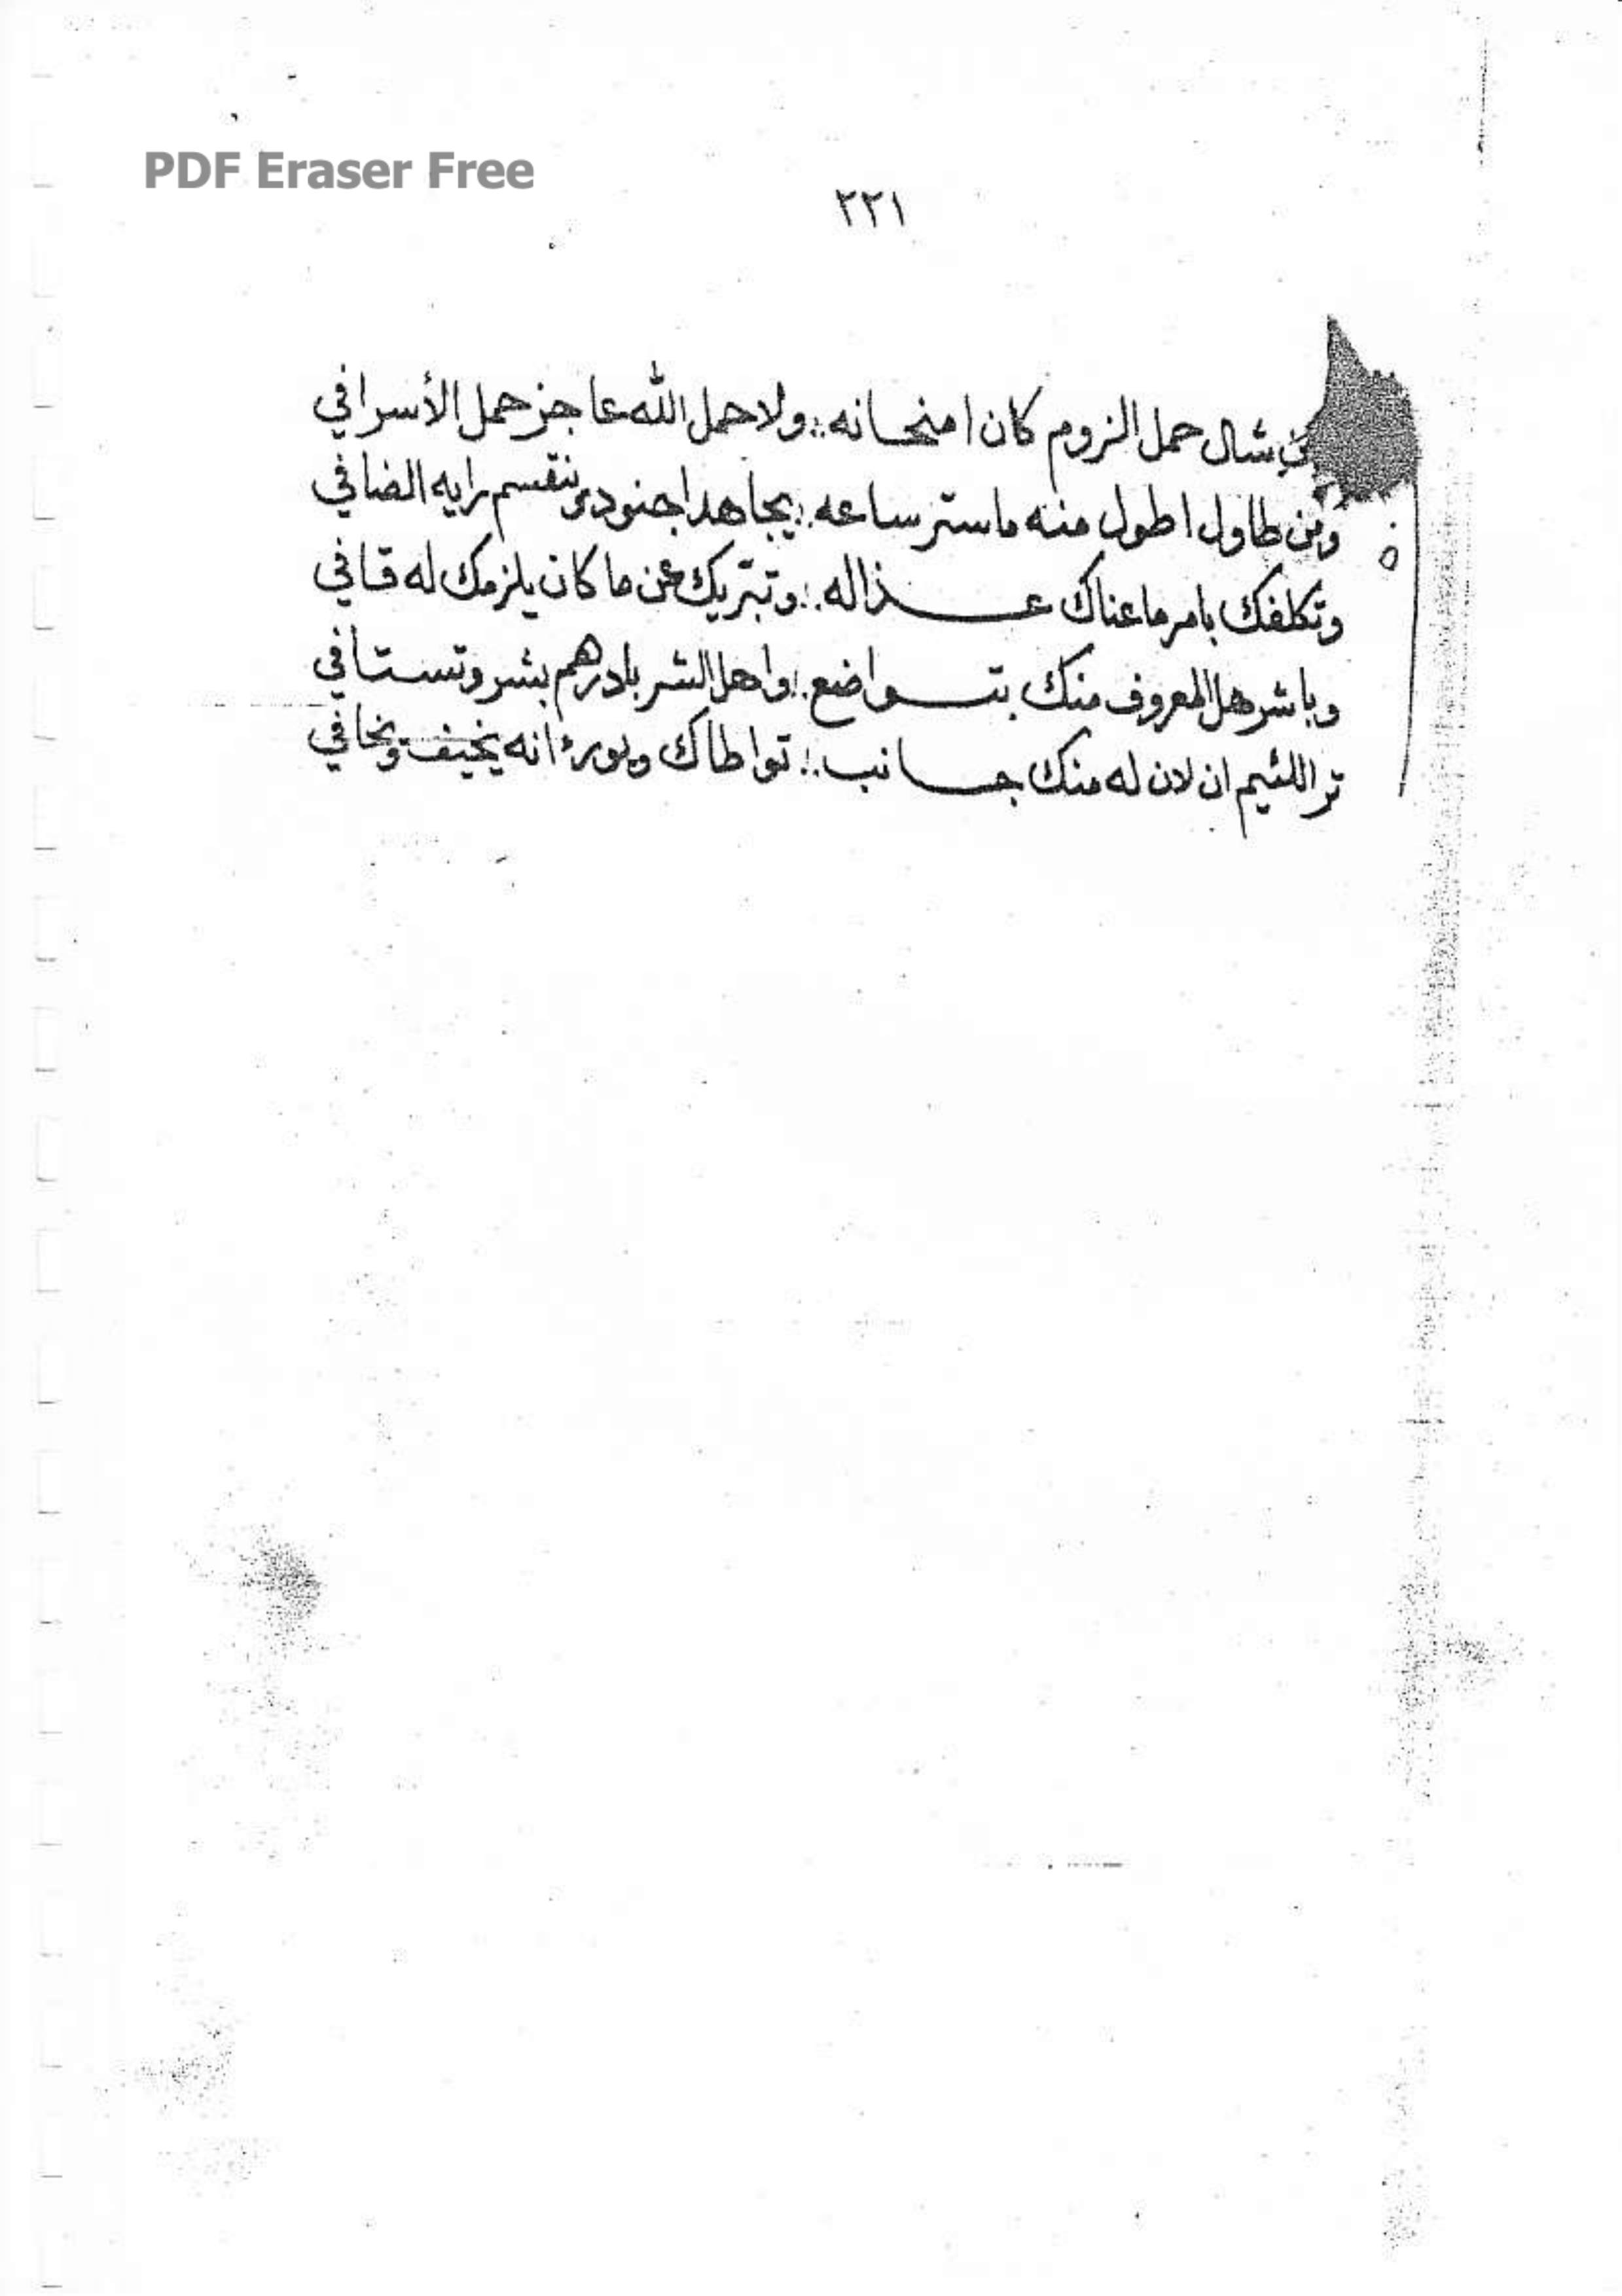 PDF Eraser Free
٢٢١
شال حمل الزوم كان امنحانه ؛ ولا حمل الله عاجز حمل الأسرافي
ومن طاول اطول منه ماستر ساعه ؛ يجاهد اجنود تنقسم رايه الضافي
٥
وتكلفك بامر ماعناك عذاله ؛ وتبتريك عن ما كان يلزمك له قافي
وباشر هل المعروف منك بتواضع ؛ واهل الشر بادرهم بشر وتستافي
تر اللئيم ان لان له منك جانب ؛ تواطاك انه يخيف وبخافي